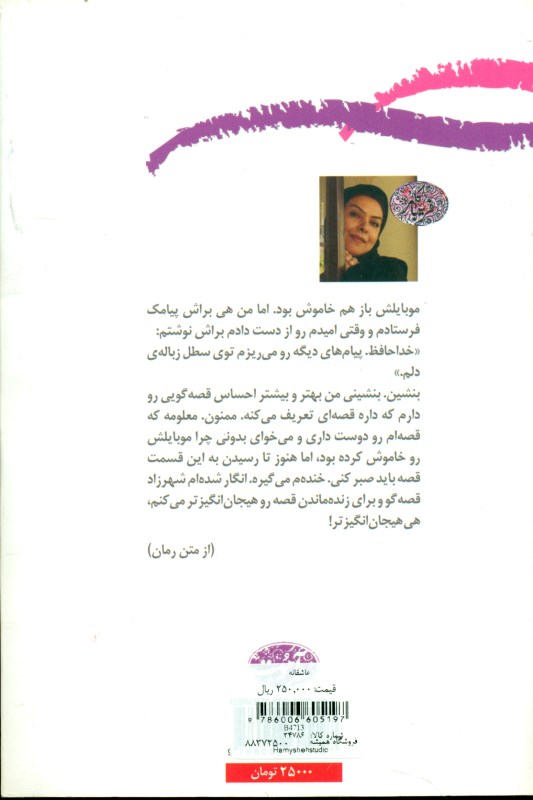 موبایلش باز هم خاموش بود. اما من هی براش پیامک
فرستادم و وقتی امیدم رو از دست دادم براش نوشتم:
«خداحافظ. پیام‌های دیگه رو می‌ریزم توی سطل زباله‌ی
دلم.»
بنشین. بنشینی من بهتر و بیشتر احساس قصه‌گویی رو
دارم که داره قصه‌ای تعریف می‌کنه. ممنون. معلومه که
قصه‌ام رو دوست داری و می‌خوای بدونی چرا موبایلش
رو خاموش کرده بود، اما هنوز تا رسیدن به این قسمت
قصه باید صبر کنی. خنده‌م می‌گیره. انگار شده‌ام شهرزاد
قصه‌گو و برای زنده‌ماندن قصه رو هیجان‌انگیزتر می‌کنم،
هی هیجان‌انگیزتر!
(از متن رمان)
عاشقانه
قیمت: ۲۵۰,۰۰۰ ریال
9 786006 605197
B4713
شماره کالا: ۳۴۷۸۶
فروشگاه همیشه ۸۸۳۷۲۵۰۰
Hamyshehstudio
۲۵۰۰۰ تومان